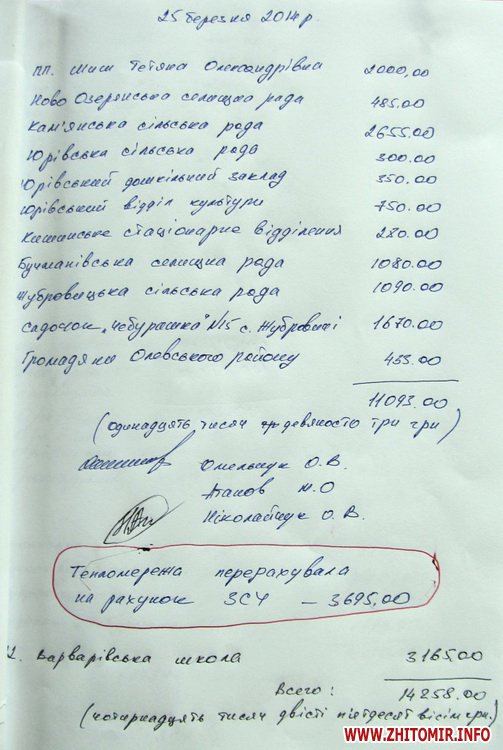 25 березня 2014 р.
ПП. Миш Тетяна Олександрівна 2000,00
Ново Озерянська селищна рада 485.00
Кам'янська сільська рада 2655.00
Юрівська сільська рада 300.00
Юрівський дошкільний заклад 350.00
Юрівський відділ культури 750.00
Кишинське стаціонарне відділення 280.00
Бучманівська селищна рада 1080.00
Жубровицька сільська рада 1090.00
садочок „Чебурашка" №15 с. Жубровичі 1670.00
Громадяни Олевського району 433.00
11093.00
(одинадцять тисяч девяносто три грн)
Омельчук О.В.
М.О
Ніколайчук О.В.
Тепломережа перерахувала
на рахунок ЗСУ – 3695,00
Варварівська школа 3165.00
Всього: 14258.00
(чотирнадцять тисяч двісті пятдесят вісім грн.)
www.ZHITOMIR.info